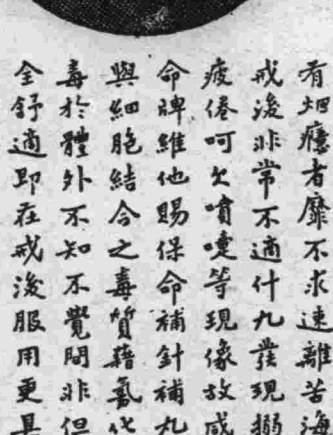 有烟癮者靡不求速離苦海
戒後非常不適什九發現搦
疲倦呵欠噴嚏等現像故咸
命牌維他賜保命補針補丸
與細胞結合之毒質藉氧化
毒於體外不知不覺間非但
全舒適即在戒後服用更具